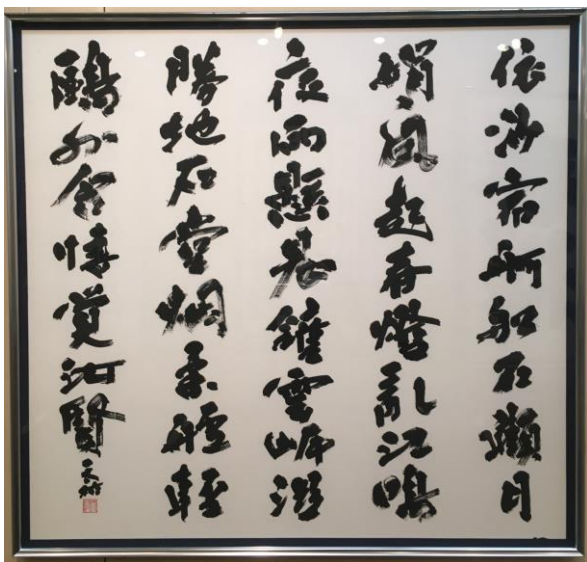 依沙宿舸船石瀨月
娟〻風起春燈亂江鳴
夜雨懸晨鐘雲岸濕
勝地石堂烟柔艣輕
鷗外含情覺汝賢